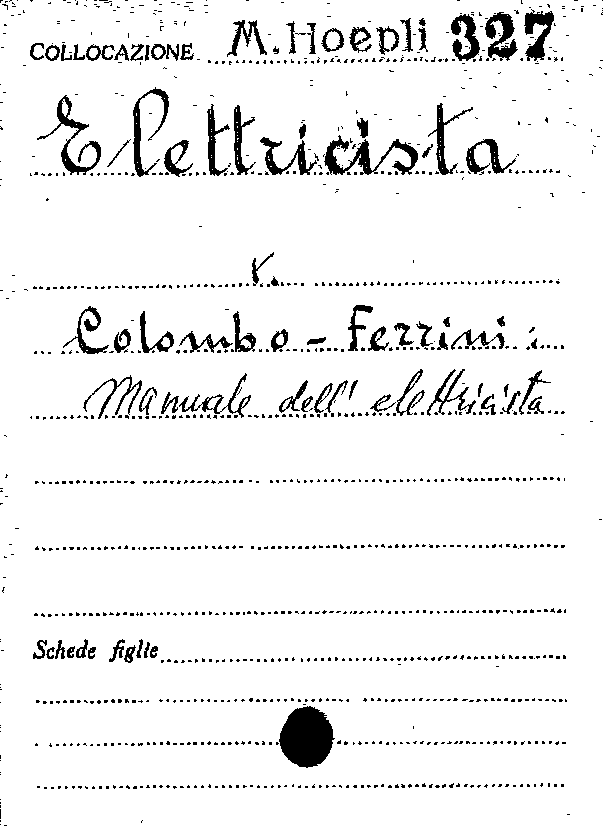 COLLOCAZIONE M. Hoepli 327
Elettricista
v.
Colombo - Ferrini :
Manuale dell' elettricista
Schede figlie